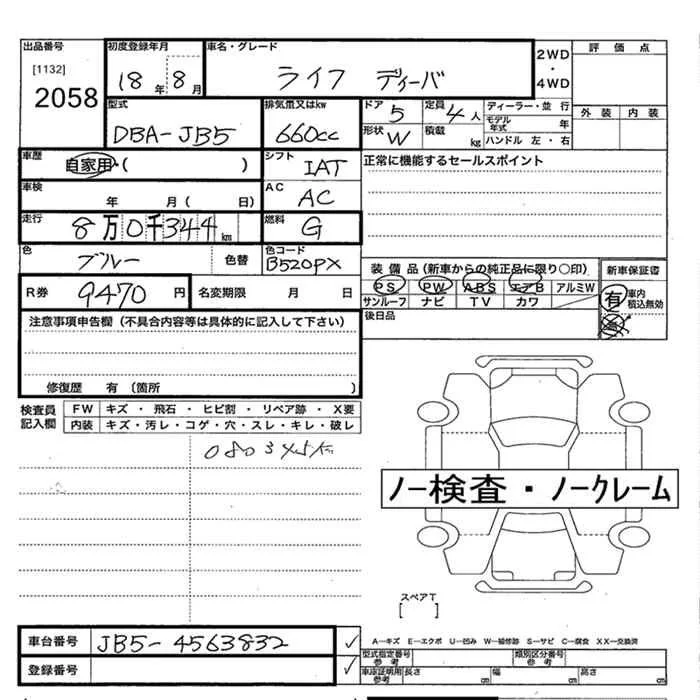 出品番号 初度登録年月 車名・グレード 2WD・4WD 評価点
[1132]
2058 18年 8月 ライフ ディーバ
外装 内装
型式 排気量又はkw ドア 5 定員 4人 ディーラー・並行
DBA-JB5 660cc モデル年式 年
形状 W 積載 kg ハンドル 左・右
車歴 自家用・( ) シフト IAT 正常に機能するセールスポイント
車検 年 月( 日) AC AC
走行 8万0千344km 燃料 G
色 ブルー 色替 色コード B520PX
装備品(新車からの純正品に限り○印) 新車保証書
PS PW ABS エアB アルミW 有 車内積込無効
R券 9470円 名変期限 月 日 サンルーフ ナビ TV カワ
注意事項申告欄(不具合内容等は具体的に記入して下さい) 後日品
修復歴 有(箇所 )
検査員記入欄 FW キズ・飛石・ヒビ割・リペア跡・X要
内装 キズ・汚レ・コゲ・穴・スレ・キレ・破レ
ノー検査・ノークレーム
スペアT
[ ]
車台番号 JB5-4563832 A―キズ E―エクボ U―凹み W―補修跡 S―サビ C―腐食 XX―交換済
型式指定番号参考 類別区分番号参考
登録番号 車庫証明用参考 長さ cm 幅 cm 高さ cm